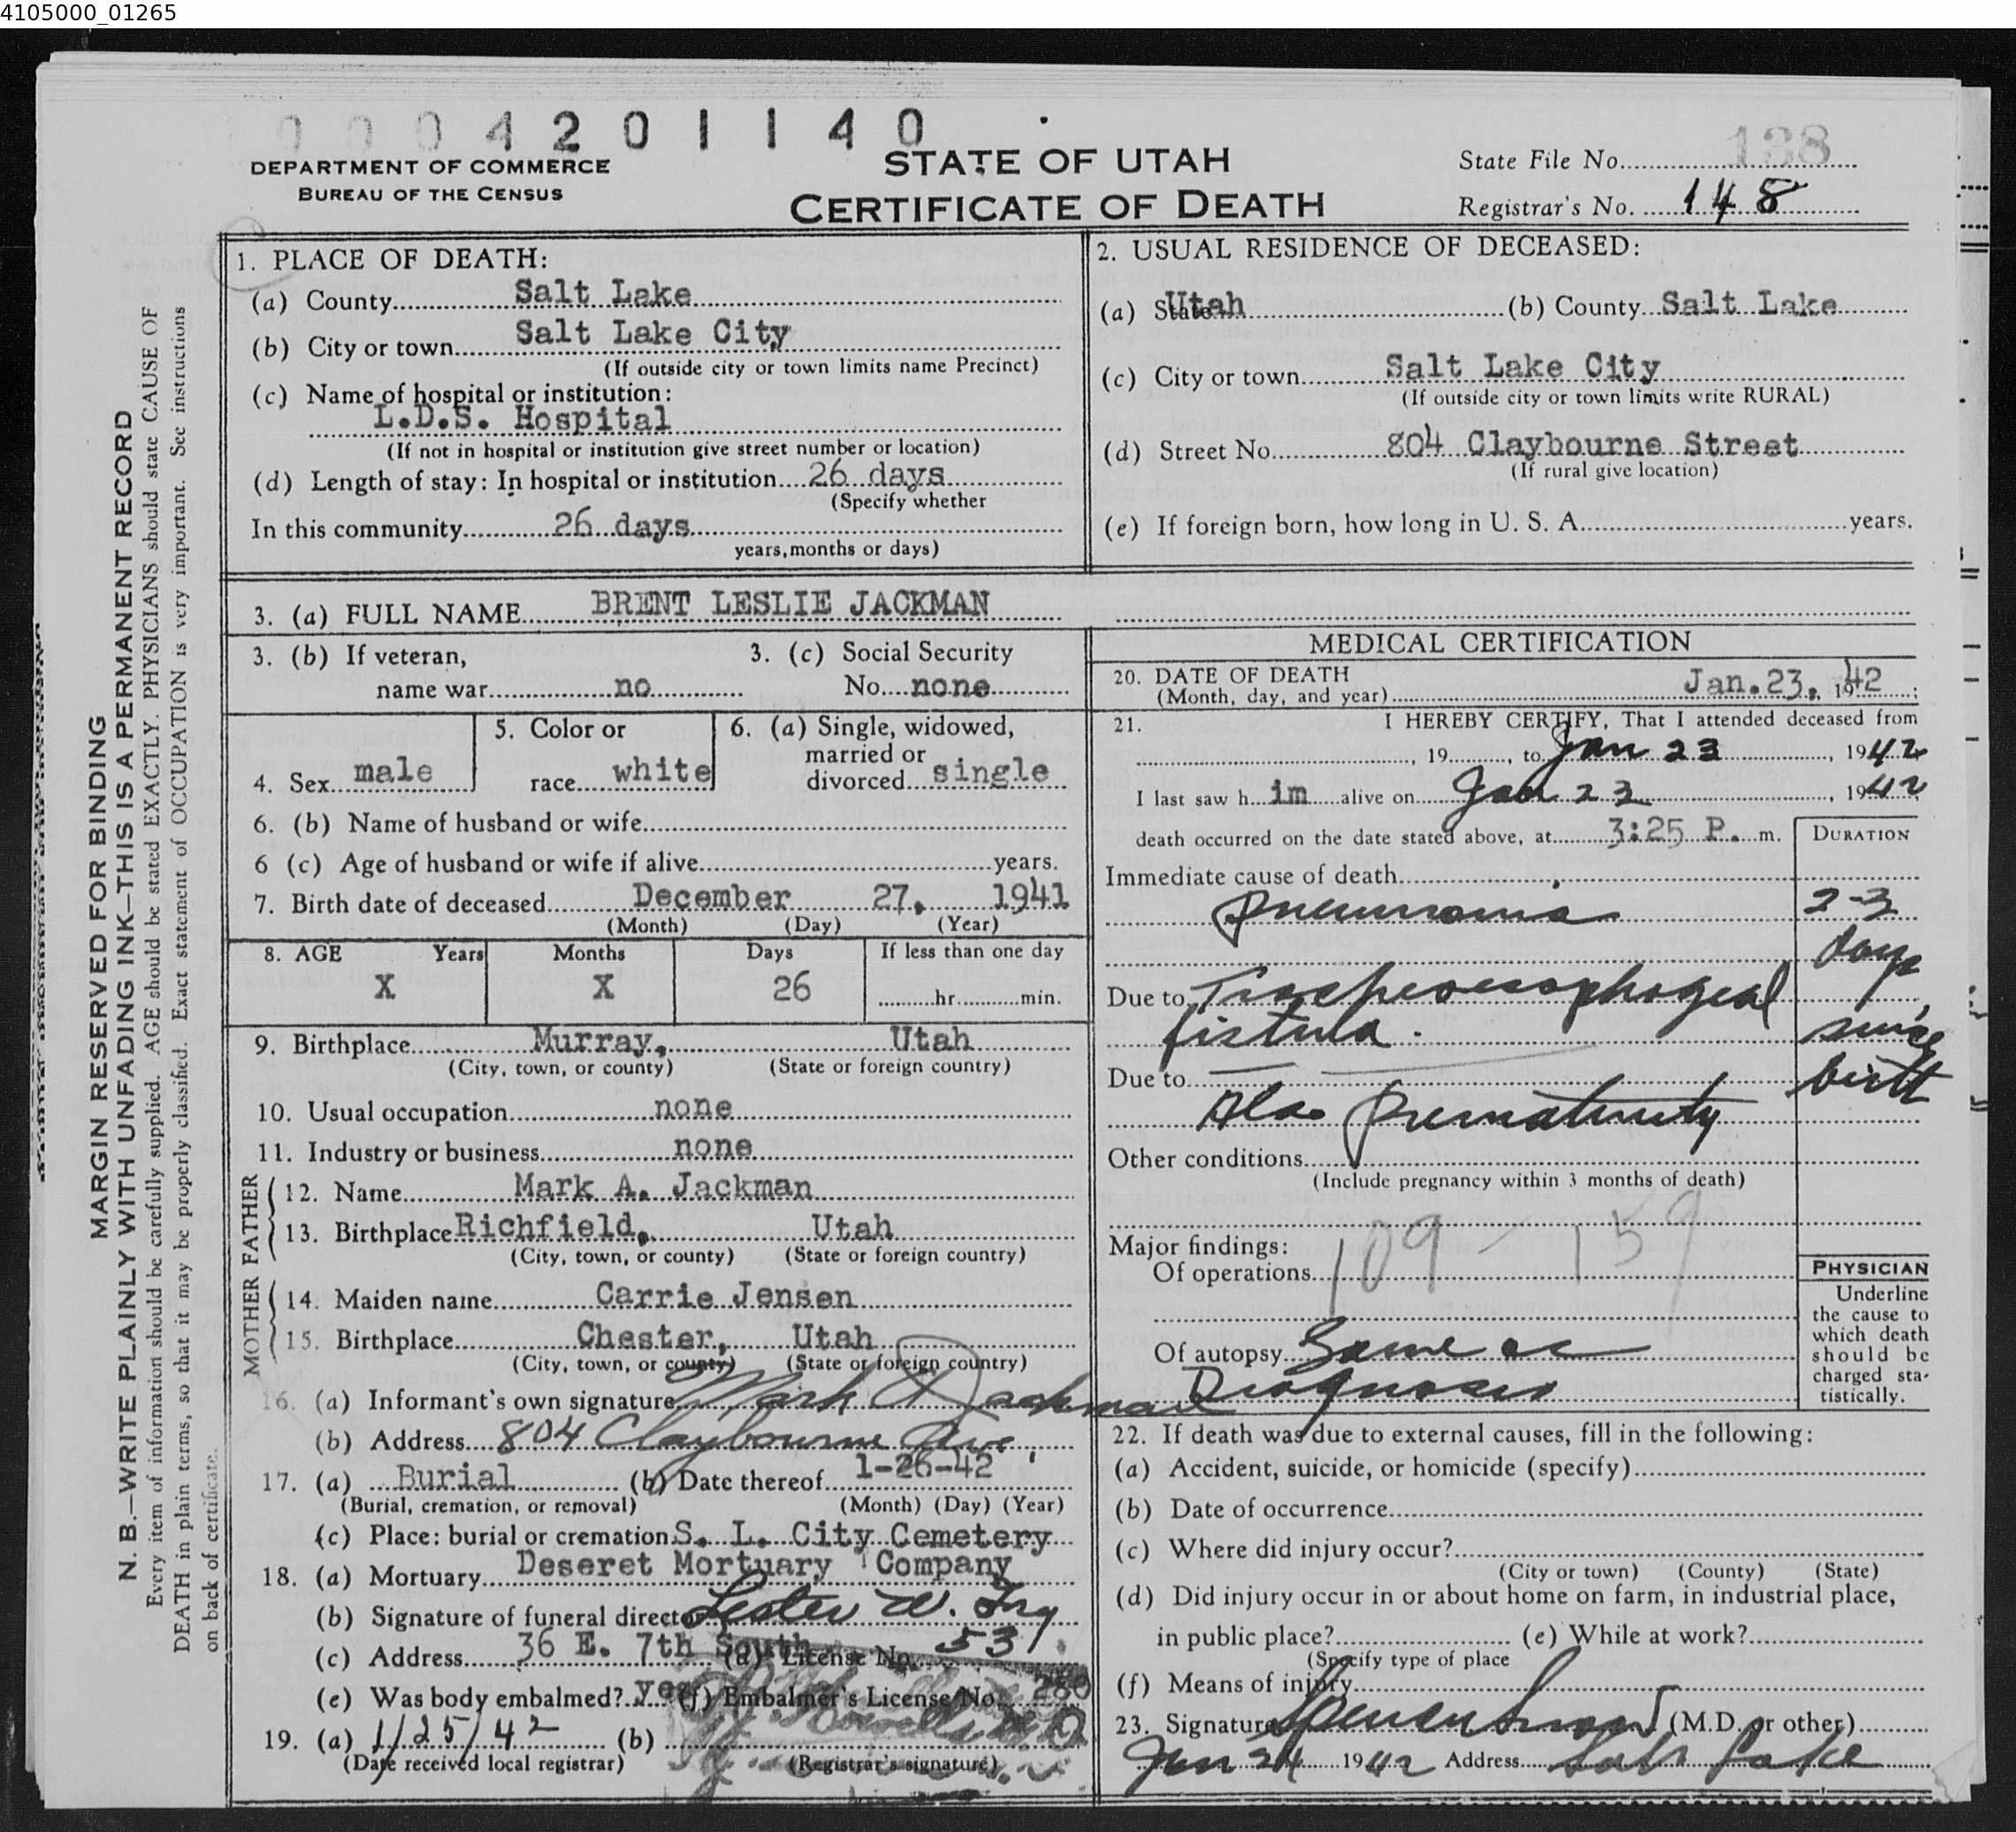 4105000_01265
0004201140
DEPARTMENT OF COMMERCE
BUREAU OF THE CENSUS
STATE OF UTAH
CERTIFICATE OF DEATH
State File No. 138
Registrar's No. 148
MARGIN RESERVED FOR BINDING
N. B.—WRITE PLAINLY WITH UNFADING INK—THIS IS A PERMANENT RECORD
Every item of information should be carefully supplied. AGE should be stated EXACTLY. PHYSICIANS should state CAUSE OF
DEATH in plain terms, so that it may be properly classified. Exact statement of OCCUPATION is very important. See instructions
on back of certificate.
1. PLACE OF DEATH:
(a) County Salt Lake
(b) City or town Salt Lake City
(If outside city or town limits name Precinct)
(c) Name of hospital or institution:
L.D.S. Hospital
(If not in hospital or institution give street number or location)
(d) Length of stay: In hospital or institution 26 days
(Specify whether
In this community 26 days
years, months or days)
2. USUAL RESIDENCE OF DECEASED:
(a) State Utah (b) County Salt Lake
(c) City or town Salt Lake City
(If outside city or town limits write RURAL)
(d) Street No. 804 Claybourne Street
(If rural give location)
(e) If foreign born, how long in U. S. A. years.
3. (a) FULL NAME BRENT LESLIE JACKMAN
3. (b) If veteran,
name war no
3. (c) Social Security
No. none
4. Sex male
5. Color or
race white
6. (a) Single, widowed,
married or
divorced single
6. (b) Name of husband or wife
6 (c) Age of husband or wife if alive years.
7. Birth date of deceased December 27, 1941
(Month) (Day) (Year)
8. AGE Years Months Days If less than one day
X X 26 hr. min.
9. Birthplace Murray, Utah
(City, town, or county) (State or foreign country)
10. Usual occupation none
11. Industry or business none
FATHER
12. Name Mark A. Jackman
13. Birthplace Richfield, Utah
(City, town, or county) (State or foreign country)
MOTHER
14. Maiden name Carrie Jensen
15. Birthplace Chester, Utah
(City, town, or county) (State or foreign country)
16. (a) Informant's own signature Mark A Jackman
(b) Address 804 Claybourne Ave.
17. (a) Burial (b) Date thereof 1-26-42
(Burial, cremation, or removal) (Month) (Day) (Year)
(c) Place: burial or cremation S. L. City Cemetery
18. (a) Mortuary Deseret Mortuary Company
(b) Signature of funeral director Lester W. Fry
(c) Address 36 E. 7th South (d) License No. 531
(e) Was body embalmed? yes (f) Embalmer's License No. 280
19. (a) 1/25/42 (b)
(Date received local registrar) (Registrar's signature)
MEDICAL CERTIFICATION
20. DATE OF DEATH
(Month, day, and year) Jan. 23, 1942
21. I HEREBY CERTIFY, That I attended deceased from
, 19 , to Jan 23 , 1942
I last saw him alive on Jan 23 , 1942
death occurred on the date stated above, at 3:25 P. m.
DURATION
Immediate cause of death
Pneumonia 2-3
days
Due to Tracheoesophogeal
fistula. since
Due to birth
Also Prematurity
Other conditions
(Include pregnancy within 3 months of death)
109 - 159
Major findings:
Of operations
Of autopsy Same as
Diagnosis
PHYSICIAN
Underline
the cause to
which death
should be
charged sta-
tistically.
22. If death was due to external causes, fill in the following:
(a) Accident, suicide, or homicide (specify)
(b) Date of occurrence
(c) Where did injury occur?
(City or town) (County) (State)
(d) Did injury occur in or about home on farm, in industrial place,
in public place? (e) While at work?
(Specify type of place
(f) Means of injury
23. Signature (M.D. or other)
Jan 24 1942 Address Salt Lake